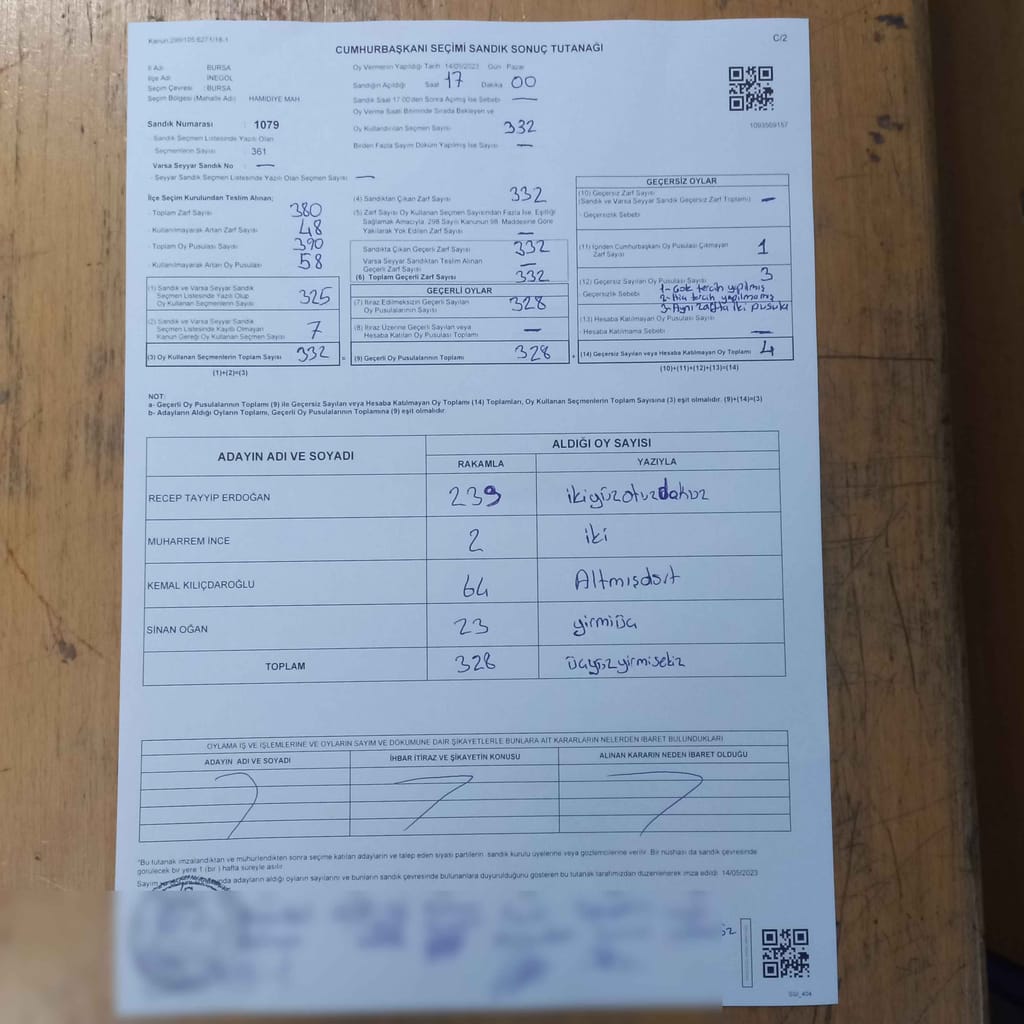 Kanun:298/105.6271/18-1
C/2
CUMHURBAŞKANI SEÇİMİ SANDIK SONUÇ TUTANAĞI
İl Adı : BURSA
İlçe Adı : İNEGÖL
Seçim Çevresi : BURSA
Seçim Bölgesi (Mahalle Adı) : HAMİDİYE MAH
Sandık Numarası : 1079
- Sandık Seçmen Listesinde Yazılı Olan
Seçmenlerin Sayısı : 361
Varsa Seyyar Sandık No : —
- Seyyar Sandık Seçmen Listesinde Yazılı Olan Seçmen Sayısı : —
Oy Vermenin Yapıldığı Tarih 14/05/2023 Gün Pazar
Sandığın Açıldığı Saat 17 Dakika 00
Sandık Saat 17.00'den Sonra Açılmış İse Sebebi —
Oy Verme Saati Bitiminde Sırada Bekleyen ve
Oy Kullandırılan Seçmen Sayısı 332
Birden Fazla Sayım Döküm Yapılmış İse Sayısı —
1093569157
İlçe Seçim Kurulundan Teslim Alınan;
- Toplam Zarf Sayısı 380
- Kullanılmayarak Artan Zarf Sayısı 48
- Toplam Oy Pusulası Sayısı 390
- Kullanılmayarak Artan Oy Pusulası 58
(1) Sandık ve Varsa Seyyar Sandık
Seçmen Listesinde Yazılı Olup
Oy Kullanan Seçmenlerin Sayısı 325
(2) Sandık ve Varsa Seyyar Sandık
Seçmen Listesinde Kayıtlı Olmayan
Kanun Gereği Oy Kullanan Seçmen Sayısı 7
(3) Oy Kullanan Seçmenlerin Toplam Sayısı 332 =
(1)+(2)=(3)
(4) Sandıktan Çıkan Zarf Sayısı 332
(5) Zarf Sayısı Oy Kullanan Seçmen Sayısından Fazla İse, Eşitliği
Sağlamak Amacıyla, 298 Sayılı Kanunun 98. Maddesine Göre
Yakılarak Yok Edilen Zarf Sayısı —
Sandıkta Çıkan Geçerli Zarf Sayısı 332
Varsa Seyyar Sandıktan Teslim Alınan
Geçerli Zarf Sayısı —
(6) Toplam Geçerli Zarf Sayısı 332
GEÇERLİ OYLAR
(7) İtiraz Edilmeksizin Geçerli Sayılan
Oy Pusulasının Sayısı 328
(8) İtiraz Üzerine Geçerli Sayılan veya
Hesaba Katılan Oy Pusulası Toplamı —
(9) Geçerli Oy Pusulalarının Toplamı 328 +
GEÇERSİZ OYLAR
(10) Geçersiz Zarf Sayısı
(Sandık ve Varsa Seyyar Sandık Geçersiz Zarf Toplamı) —
- Geçersizlik Sebebi
(11) İçinden Cumhurbaşkanı Oy Pusulası Çıkmayan
Zarf Sayısı 1
(12) Geçersiz Sayılan Oy Pusulası Sayısı 3
- Geçersizlik Sebebi 1- Çok tercih yapılmış
2- Hiç tercih yapılmamış
3- Aynı zarfta iki pusula
(13) Hesaba Katılmayan Oy Pusulası Sayısı
- Hesaba Katılmama Sebebi —
(14) Geçersiz Sayılan veya Hesaba Katılmayan Oy Toplamı 4
(10)+(11)+(12)+(13)=(14)
NOT:
a- Geçerli Oy Pusulalarının Toplamı (9) ile Geçersiz Sayılan veya Hesaba Katılmayan Oy Toplamı (14) Toplamları, Oy Kullanan Seçmenlerin Toplam Sayısına (3) eşit olmalıdır. (9)+(14)=(3)
b- Adayların Aldığı Oyların Toplamı, Geçerli Oy Pusulalarının Toplamına (9) eşit olmalıdır.
ADAYIN ADI VE SOYADI ALDIĞI OY SAYISI
RAKAMLA YAZIYLA
RECEP TAYYIP ERDOĞAN 239 ikiyüzotuzdokuz
MUHARREM İNCE 2 iki
KEMAL KILIÇDAROĞLU 64 Altmışdört
SİNAN OĞAN 23 yirmiüç
TOPLAM 328 üçyüzyirmisekiz
OYLAMA İŞ VE İŞLEMLERİNE VE OYLARIN SAYIM VE DÖKÜMÜNE DAİR ŞİKAYETLERLE BUNLARA AİT KARARLARIN NELERDEN İBARET BULUNDUKLARI
ADAYIN ADI VE SOYADI İHBAR İTİRAZ VE ŞİKAYETİN KONUSU ALINAN KARARIN NEDEN İBARET OLDUĞU
"Bu tutanak imzalandıktan ve mühürlendikten sonra seçime katılan adayların ve talep eden siyasi partilerin sandık kurulu üyelerine veya gözlemcilerine verilir. Bir nüshası da sandık çevresinde
görülecek bir yere 1 (bir) hafta süreyle asılır.
Sayım adayların aldığı oyların sayılarını ve bunların sandık çevresinde bulunanlara duyurulduğunu gösteren bu tutanak tarafımızdan düzenlenerek imza edildi. 14/05/2023